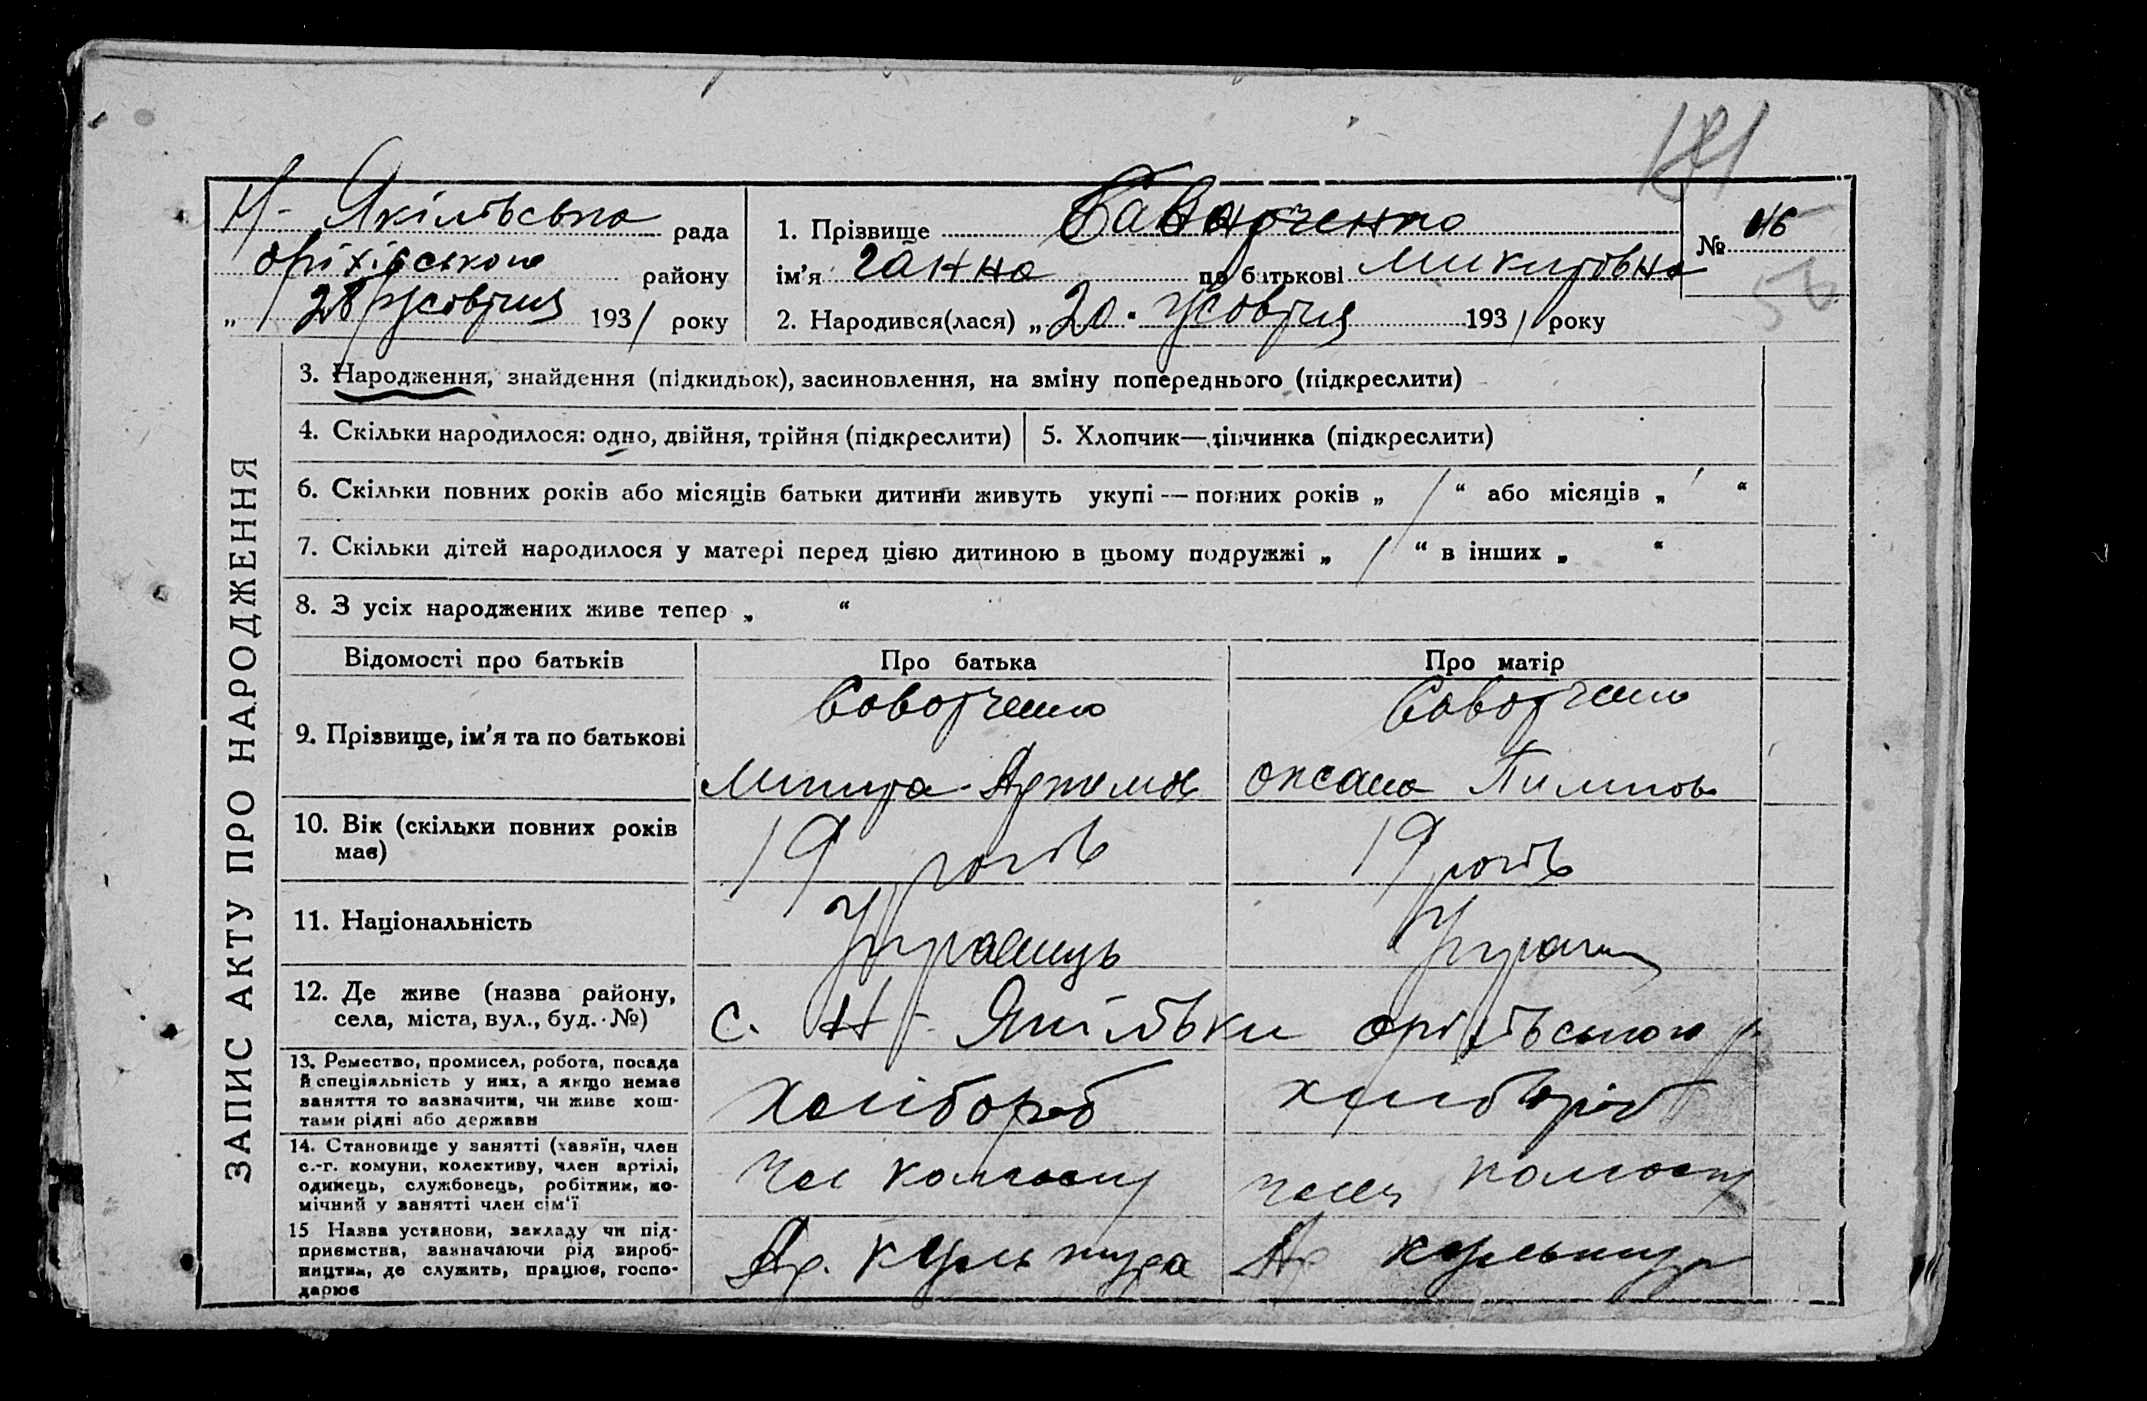 181
Н- Якілівська рада
оріхівського району
„ 28 жовтня 1931 року
1. Прізвище Саворченко
ім'я Ганна по батькові Микитовна
2. Народився(лася) „ 20 " жовтня 1931 року
№ 46
56
ЗАПИС АКТУ ПРО НАРОДЖЕННЯ
3. Народження, знайдення (підкидьок), засиновлення, на зміну попереднього (підкреслити)
4. Скільки народилося: одно, двійня, трійня (підкреслити)
5. Хлопчик—дівчинка (підкреслити)
6. Скільки повних років або місяців батьки дитини живуть укупі — повних років „ / “ або місяців „ “
7. Скільки дітей народилося у матері перед цією дитиною в цьому подружжі „ / “ в інших „ “
8. З усіх народжених живе тепер „ “
Відомості про батьків
Про батька
Про матір
9. Прізвище, ім'я та по батькові
Саворченко
Микита Артемов
Саворченко
Оксана
10. Вік (скільки повних років має)
19 років
19 років
11. Національність
Українець
Україн
12. Де живе (назва району,
села, міста, вул., буд. №)
с. Н- Якілівки оріхівського р.
13. Ремество, промисел, робота, посада
й спеціяльність у них, а якщо немає
заняття то зазначити, чи живе кош-
тами рідні або держави
Хлібороб
хлібороб
14. Становище у занятті (хазяїн, член
с.-г. комуни, колективу, член артілі,
одинець, службовець, робітник, по-
мічний у занятті член сім'ї
чл колгоспу
член колгоспу
15 Назва установи, закладу чи під-
приємства, зазначаючи рід вироб-
ництва, де служить, працює, госпо-
дарює
культура
культура